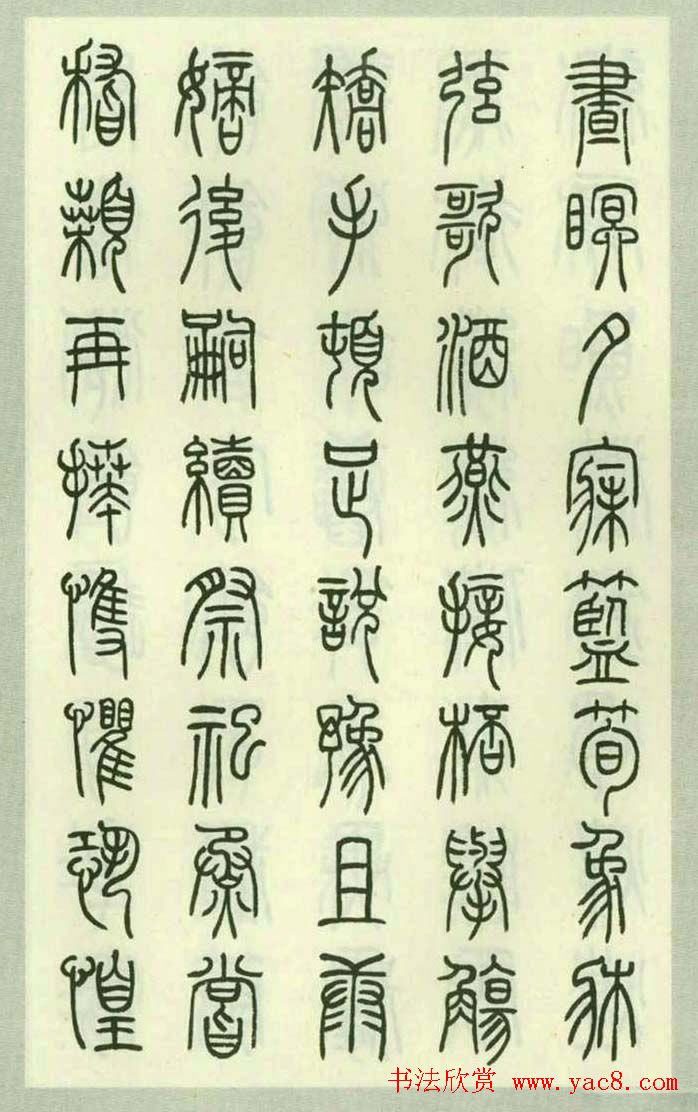 晝瞑夕寐藍荀象牀
弦歌酒燕接桮舉觴
矯手頓足說豫且康
嫡後嗣續祭祀烝嘗
稽顙再拜愯懼恐惶
书法欣赏 www.yac8.com